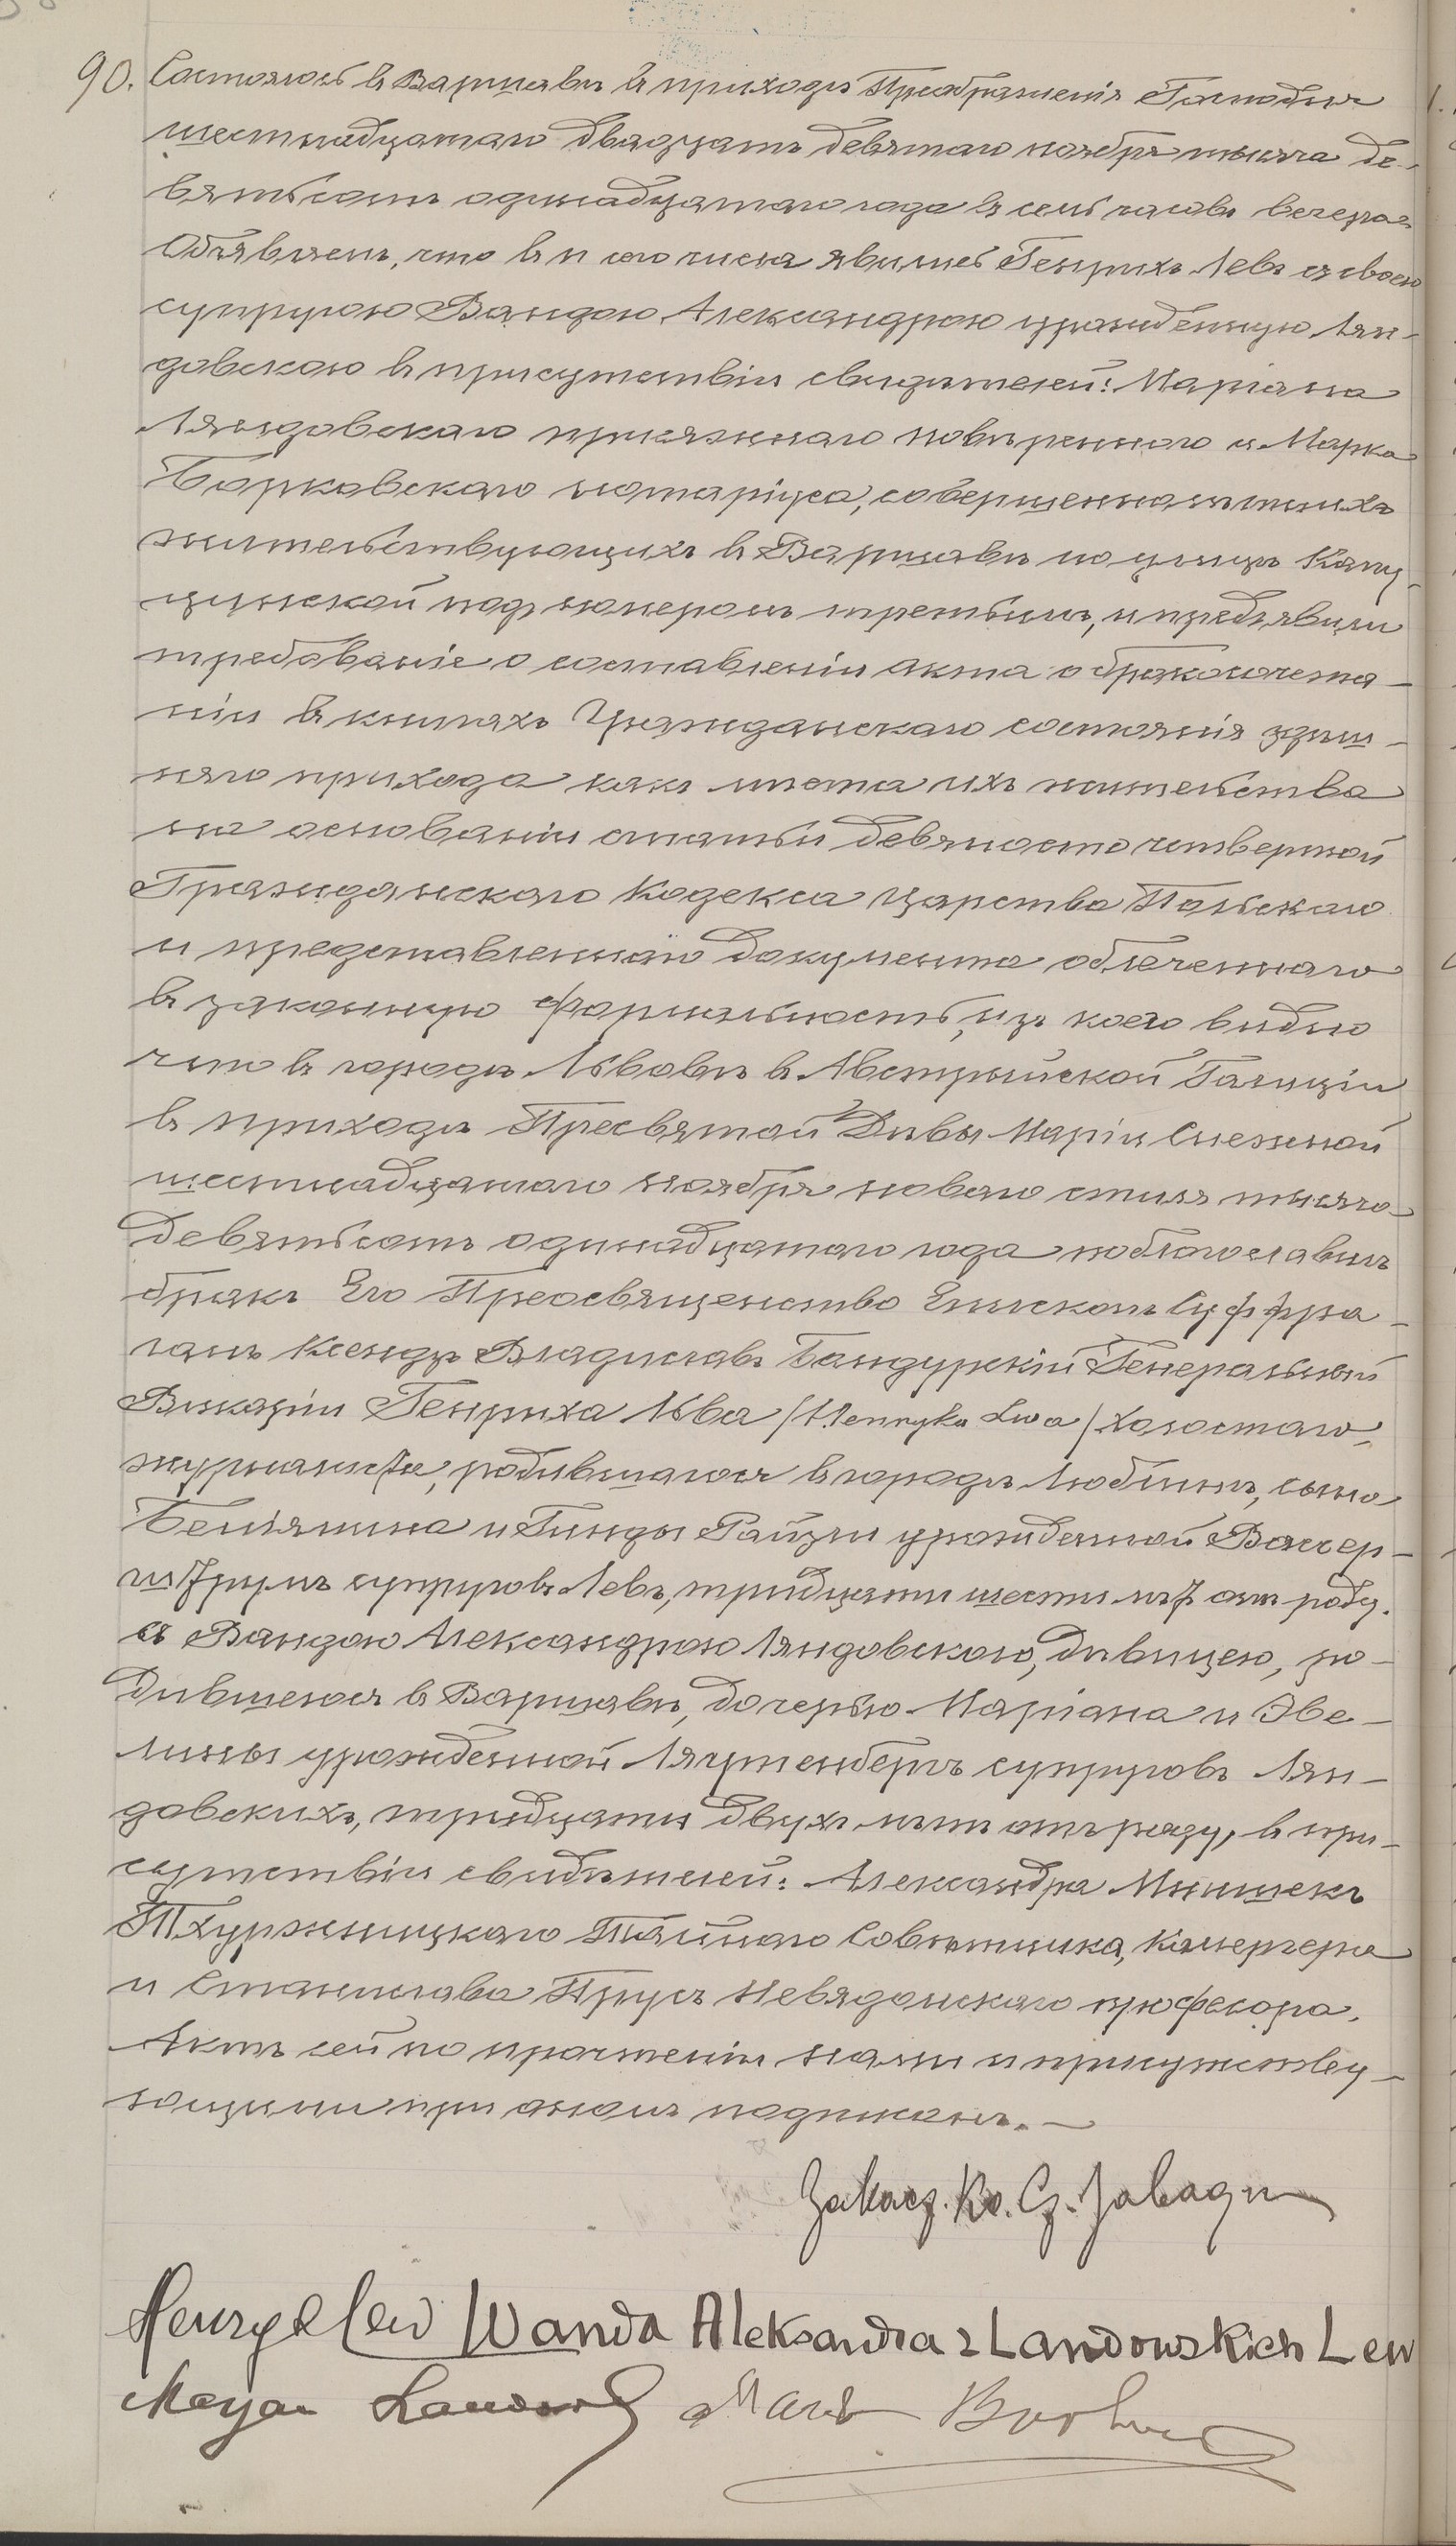 90. Состоялось въ Варшавѣ въ приходѣ Преображенія Господня
шестнадцатаго двадцать девятаго ноября тысяча де-
вятьсотъ одинадцатаго года въ семь часовъ вечера
Объявляемъ, что въ и сего числа явились Генрихъ Левъ съ своею
супругою Вандою Александрою урожденною Лян-
довскою въ присутствіи свидѣтелей: Маріана
Ляндовскаго присяжнаго повѣреннаго и Марка
Борковскаго нотаріуса, совершеннолѣтнихъ
жительствующихъ въ Варшавѣ по улицѣ Капу-
цинской подъ номеромъ третьимъ, и предъявили
требованіе о составленіи акта о бракосочета-
ніи въ книгахъ Гражданскаго состоянія здѣш-
няго прихода какъ мѣста ихъ жительства
на основаніи статьи девяносто четвертой
Гражданскаго Кодекса Царства Польскаго
и представленнаго документа облеченнаго
въ законную формальность, изъ коего видно
что въ городѣ Львовѣ въ Австрыйской Галиціи
въ приходѣ Пресвятой Дѣвы Маріи Снежной
шестнадцатаго ноября новаго стиля тысяча
девятьсотъ одинадцатаго года поблагославилъ
бракъ Его Преосвященство Епископъ Суффра-
ганъ Ксендзъ Владиславъ Бандурскій Генеральный
Викарій Генриха Льва /Henryka Lwa/ холостаго,
журналиста, родившагося въ городѣ Люблинѣ, сына
Беніямина и Гинды Райзли урожденной Вассер-
штрумъ супруговъ Левъ, тридцати шести лѣтъ отъ роду.
съ Вандою Александрою Ляндовскою, дѣвицею, ро-
дившеюся въ Варшавѣ, дочерью Маріана и Эве-
лины урожденной Ляутенбергъ супруговъ Лян-
довскихъ, тридцати двухъ лѣтъ отъ роду, въ при-
сутствіи свидѣтелей: Александра Мнишекъ
Тхуржницкаго Тайнаго Совѣтника, Камергера
и Станислава Прусъ Невядомскаго профессора.
Актъ сей по прочтеніи нами и присутству-
ющими при ономъ подписанъ.
Henryk Lew Wanda Aleksandra z Landowskich Lew
Maryan Landowski Marek Borkowski